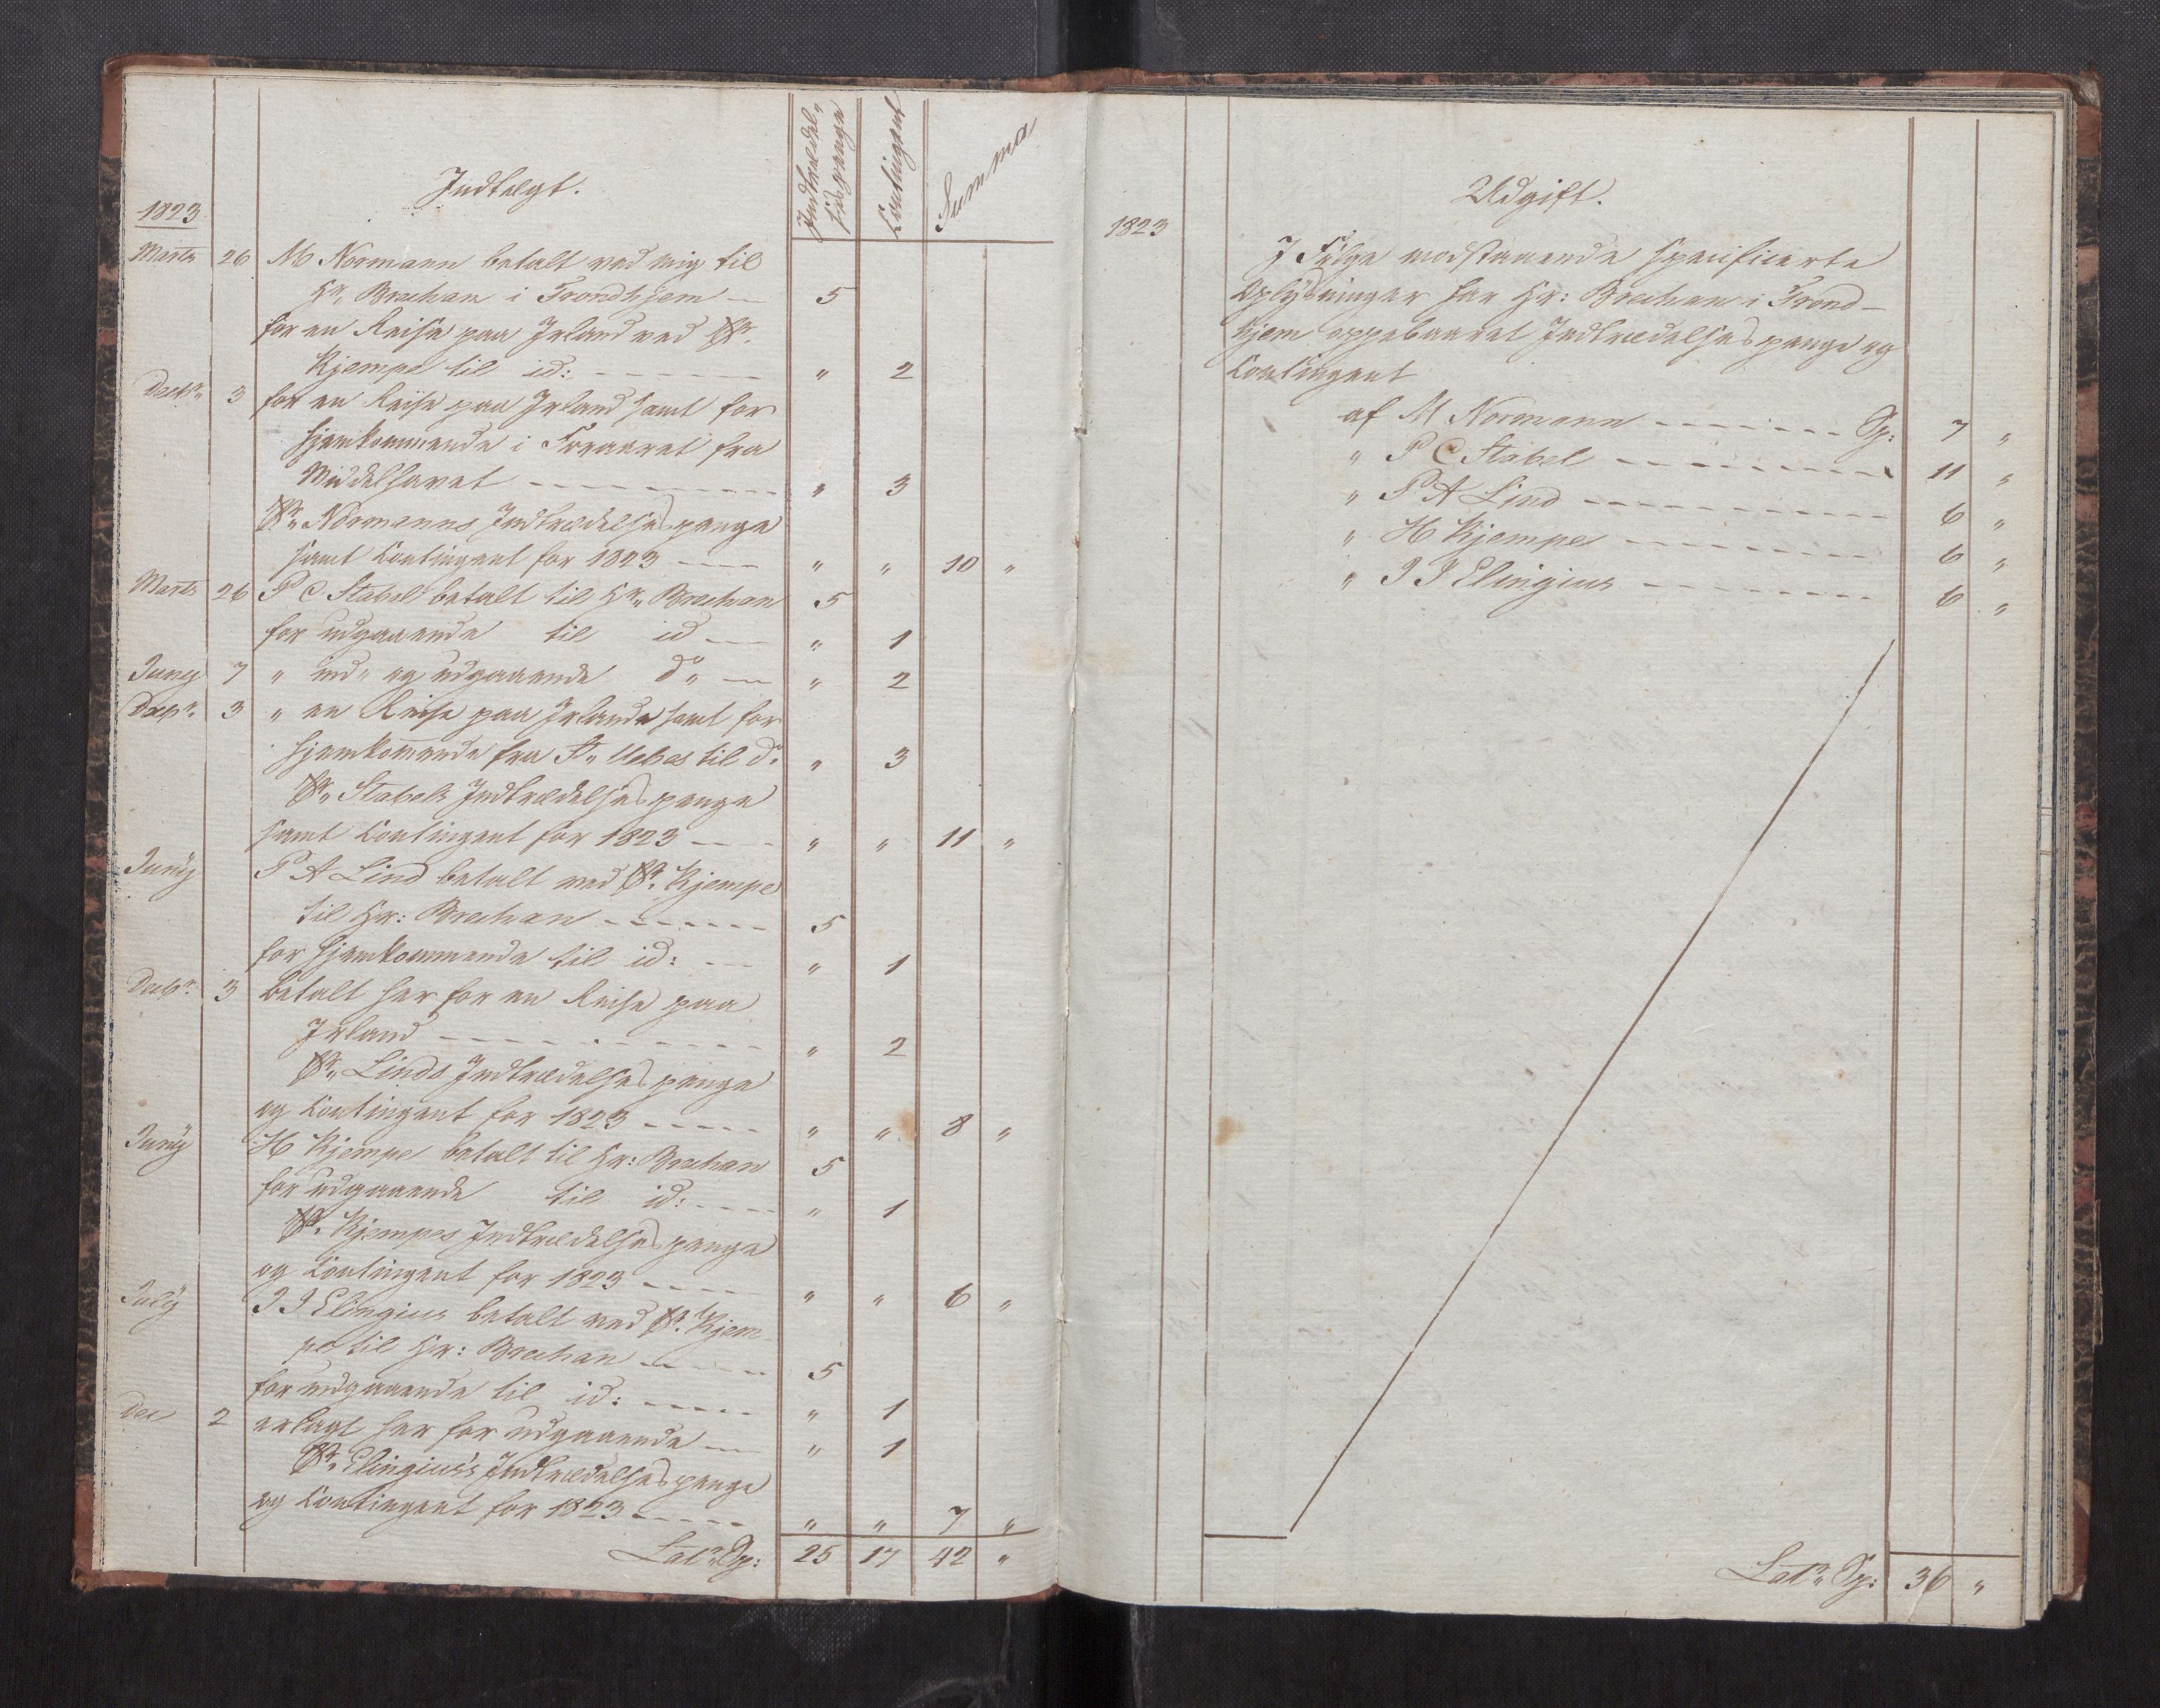 Indtrædel-
sespenge
Contingent
Summa
Indtægt.
1823
Marts 26 M Normann betalt ved mig til
Hr. Brechan i Trondhjem — 5
for en Reise paa Irland ved Br.
Kjempe til id: - - - - - - " 2
Decbr. 3 for en Reise paa Irland samt for
hjemkommende i Foraaret fra
Middelhavet - - - - - - - - - " 3
Br. Normanns Indtrædelsespenge
samt Contingent for 1823 - - - - " " 10 "
Marts 26 P C Stabel betalt til Hr. Brechan 5
for udgaaende til id — " 1
Juny 7 " ind- og udgaaende do — " 2
Decbr. 3 " en Reise paa Irland samt for
hjemkomende fra St. Uebes til do " 3
Br. Stabels Indtrædelsespenge
samt Contingent for 1823 - - - " " 11 "
Juny P A Lind betalt ved Br. Kjempe
til Hr: Brechan - - - - - - - 5
for hjemkommende til id: - - " 1
Decbr. 3 betalt her for en Reise paa
Irland - - - - - - - - - - - " 2
Br. Linds Indtrædelsespenge
og Contingent for 1823 - - - - - " " 8 "
Juny H Kjempe betalt til Hr: Brechan 5
for udgaaende til id: - - - - " 1
Br. Kjempes Indtrædelsespenge
og Contingent for 1823 - - - - " " 6 "
July I I Elingius betalt ved Br. Kjem-
pe til Hr: Brechan - - - - - 5
for udgaaende til id: - - - - - " 1
Dec 2 erlagt her for udgaaende — " 1
Br. Elingius's Indtrædelsespenge
og Contingent for 1823 - - - - - " " 7 "
Latr. Sp: 25 17 42 "
Udgift.
1823
I Følge modstaaende specificerte
Oplysninger har Hr: Brechan i Trond-
hjem oppebaaret Indtrædelsespenge og
Contingent
af M Normann - - - - - - - Sp: 7 "
" P C Stabel - - - - - - - - - 11 "
" P A Lind - - - - - - - - - - - 6 "
" H Kjempe - - - - - - - - - 6 "
" I I Elingius - - - - - - - - - 6 "
Latr. Sp: 36 "